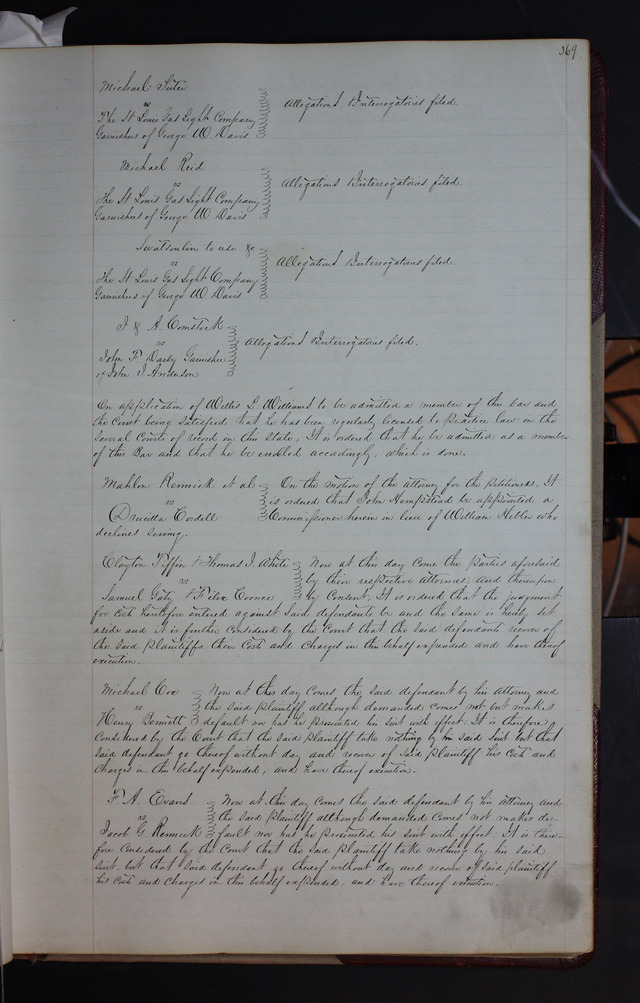 369
Michael Suter
vs
The St Louis Gas Light Company
Garnishees of George W. Davis
Allegations & Interrogatories filed.
Michael Reid
vs
The St Louis Gas Light Company
Garnishees of George W Davis
Allegations & Interrogatories filed.
to use &c
vs
The St Louis Gas Light Company
Garnishees of George W. Davis
Allegations & Interrogatories filed.
J & A. Comstock
vs
John F. Darby Garnishee
of John J. Anderson
Allegations & Interrogatories filed.
On application of Willis L. Williams to be admitted a member of this bar and
the Court being satisfied that he has been regularly licensed to practice law in the
several Courts of record in this State, It is ordered that he be admitted as a member
of this Bar and that he be enrolled accordingly, which is done.
Mahlon Remmick et al
vs
Drucilla Cordell
On the motion of the attorney for the Petitioners, It
is ordered that John Hempstead be appointed a
Commissioner herein in lieu of William Hiller who
declines serving.
Clayton Tiffin & Thomas J. White
vs
Samuel Gaty & Felix Coonce
Now at this day come the parties aforesaid
by their respective attornies, and thereupon
by Consent, It is ordered that the judgment
for Costs heretofore entered against said defendants be and the same is hereby set
aside and it is further Considered by the Court that the said defendants recover of
the said Plaintiffs their Costs and Charges in this behalf expended and have thereof
execution.
Michael Coe
vs
Henry Bennett
Now at this day comes the said defendant by his attorney and
the said plaintiff although demanded comes not but makes
default nor has he prosecuted his suit with effect. It is therefore
Considered by the Court that the said plaintiff take nothing by his said suit but that
said defendant go thereof without day and recover of said plaintiff his Costs and
Charges in this behalf expended, and have thereof execution.
F. A. Evans
vs
Jacob G. Remmick
Now at this day comes the said defendant by his attorney and
the said Plaintiff although demanded comes not makes de-
fault nor has he prosecuted his suit with effect: It is there-
fore Considered by the Court that the said plaintiff take nothing by his said
suit, but that said defendant go thereof without day and recover of said plaintiff
his Costs and Charges in this behalf expended, and have thereof execution.